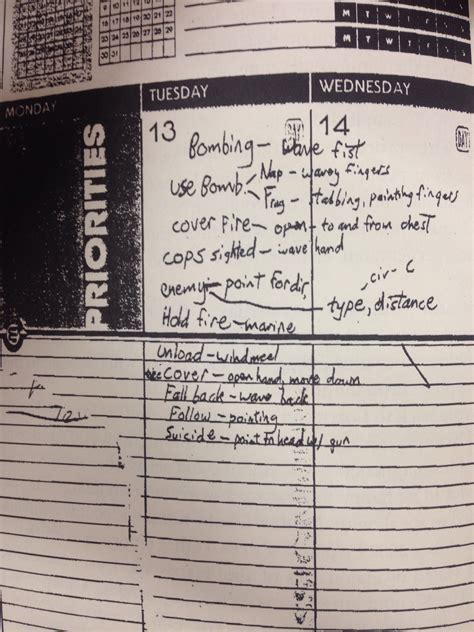 M T W T F S S
M T W T F S S
MONDAY
TUESDAY
WEDNESDAY
PRIORITIES
13
14
DAY
Bombing - wave fist
use Bomb. Nap - wavey fingers
Frag - stabbing, pointing fingers
cover Fire - open - to and from chest
cops sighted - wave hand
enemy - point for dir, type, distance
civ - C
Hold fire - marine
Unload - windmeel
cover - open hand, move down
Fall back - wave back
Follow - pointing
Suicide - point to head w/ gun